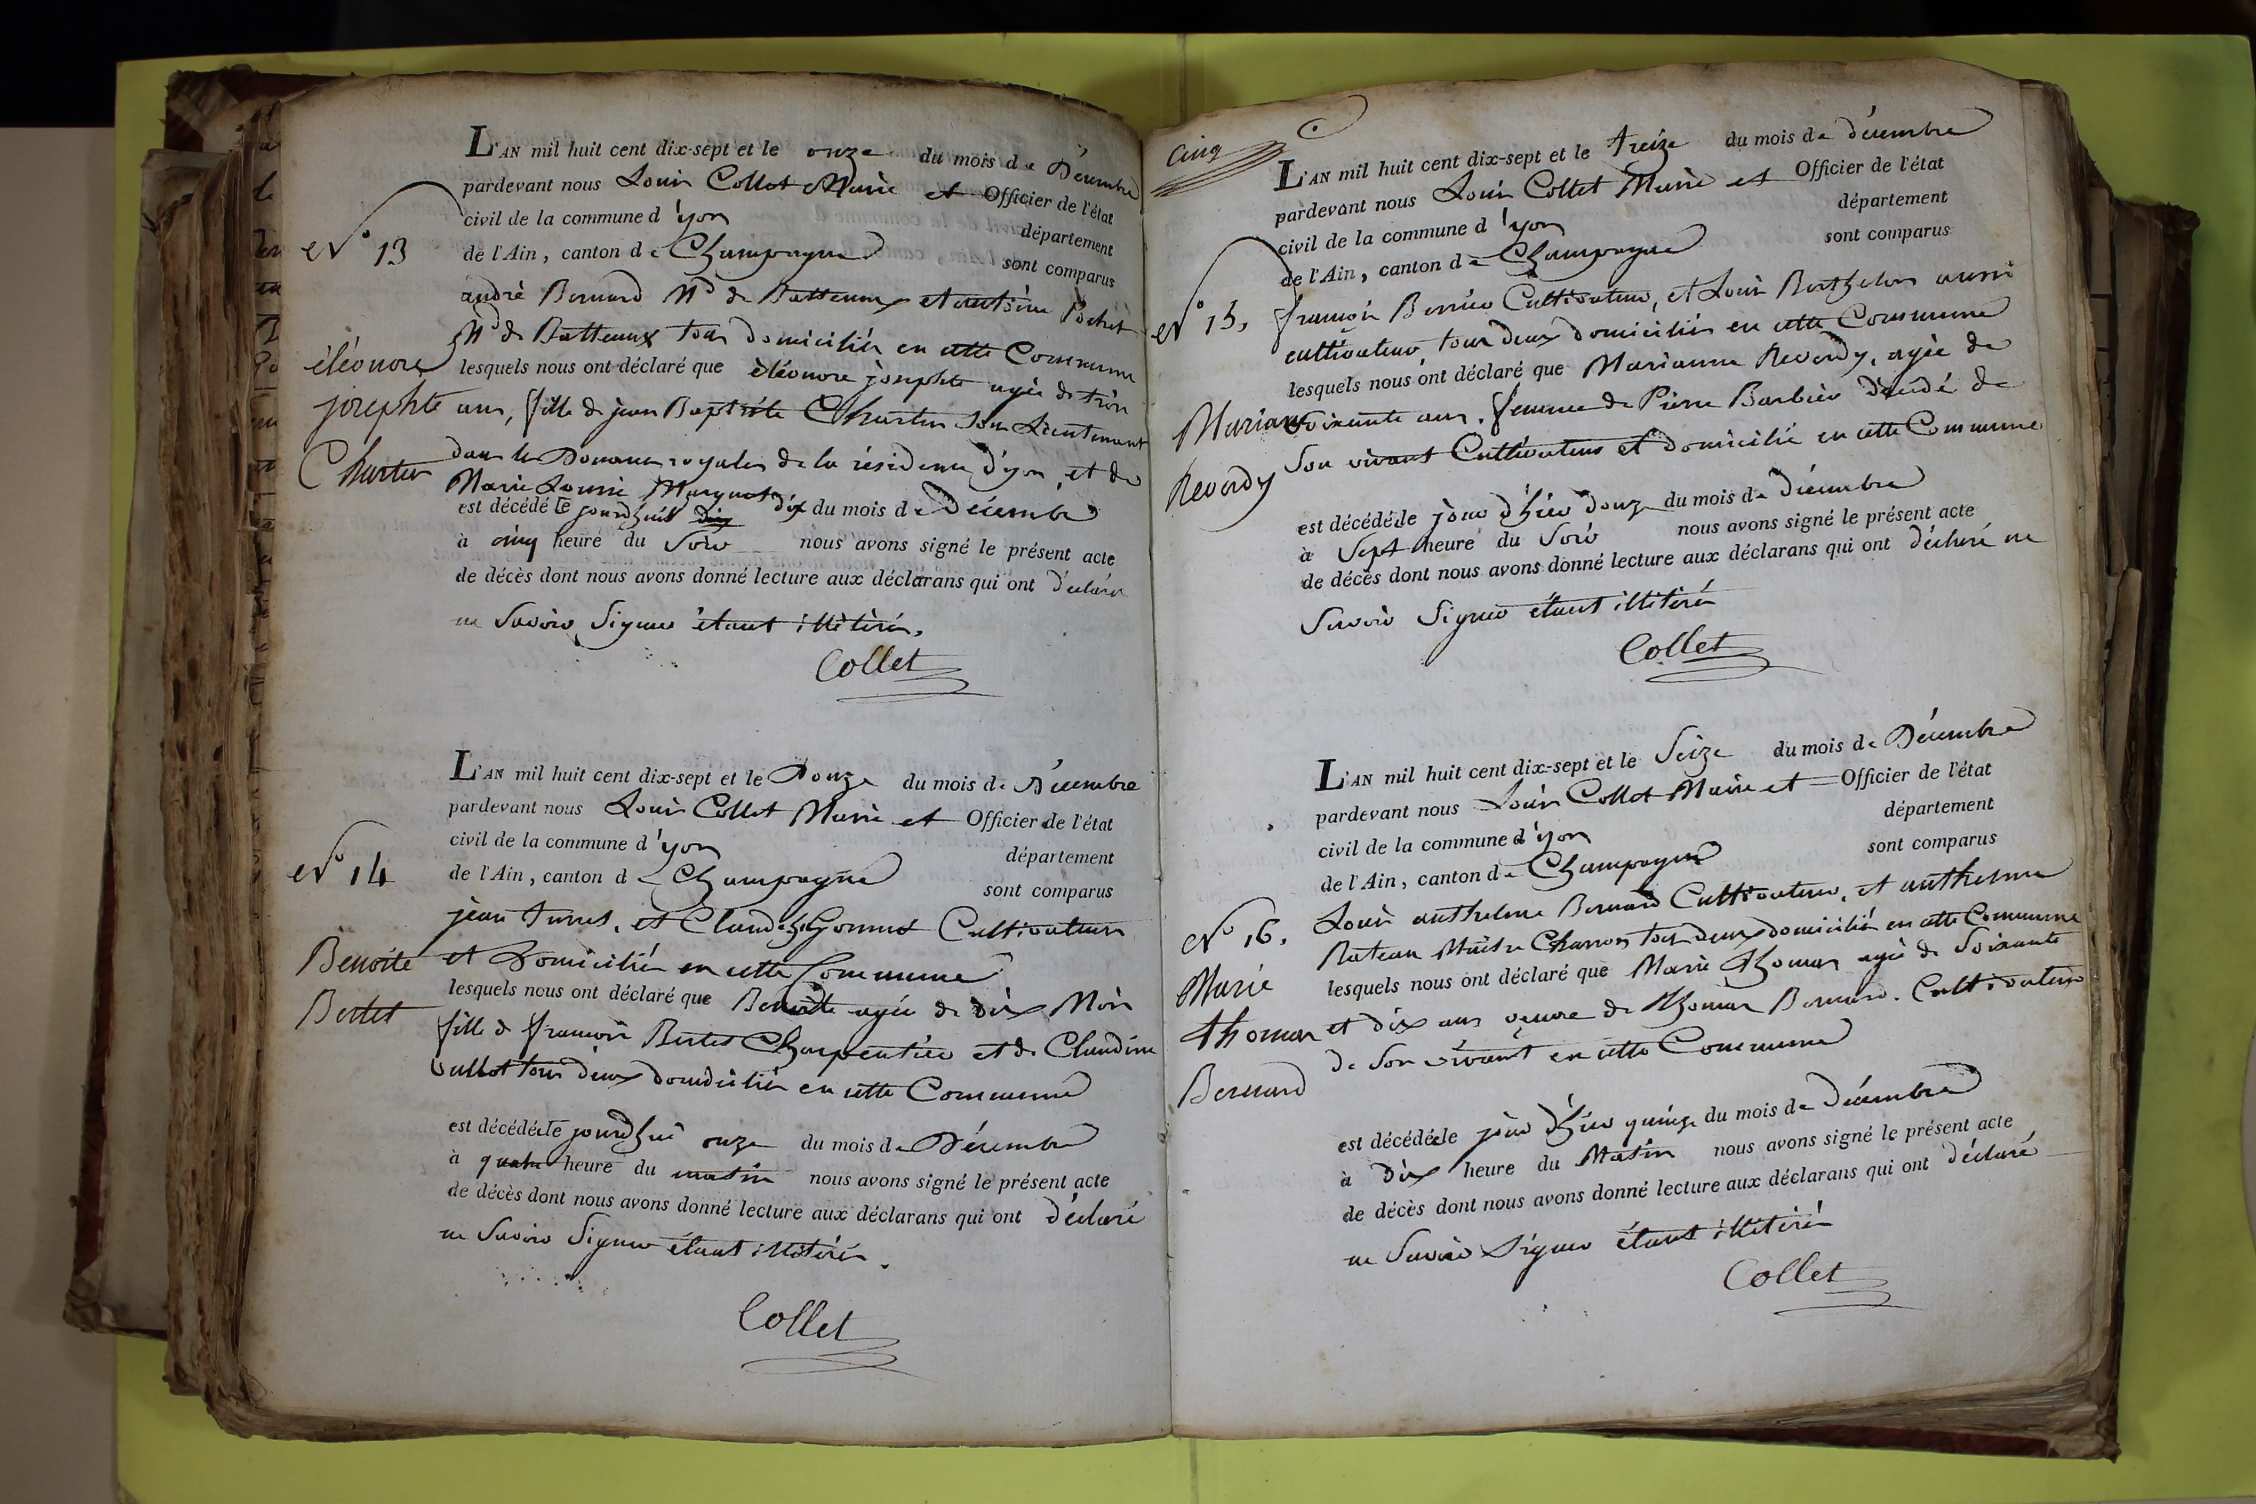 L'AN mil huit cent dix-sept et le onze du mois de Décembre
pardevant nous Louis Collet Maire et Officier de l'état
civil de la commune d'yon département
de l'Ain, canton de Champagne sont comparus
N° 13
andré Bernard Md de Batteaux et antoine Pochet
Md de Batteaux tous domiciliés en cette Commune
éléonore
josephte
Charter
lesquels nous ont déclaré que éléonore josephte agée de trois
ans, fille de jean Baptiste Charter Sous Lieutenant
dans les Douanes royales de la résidence d'yon, et de
Marie Louise Marquet
est décédé le jourdhuit dix du mois de Décembre
à cinq heure du Soir nous avons signé le présent acte
de décès dont nous avons donné lecture aux déclarans qui ont déclaré
ne Savoir Signer étant illitérés.
Collet
L'AN mil huit cent dix-sept et le Douze du mois de Décembre
pardevant nous Louis Collet Maire et Officier de l'état
civil de la commune d'yon département
de l'Ain, canton de Champagne sont comparus
N° 14
jean et Claude Cultivateurs
Benoite
Bertet
et Domiciliés en cette Commune
lesquels nous ont déclaré que Benoite agée de dix Mois
fille de françois Bertet Charpentier et de Claudine
Vullot tous deux domiciliés en cette Commune
est décédée le jourdhui onze du mois de Décembre
à quatre heure du matin nous avons signé le présent acte
de décès dont nous avons donné lecture aux déclarans qui ont déclaré
ne Savoir Signer étant illitérés.
Collet
Cinq
L'AN mil huit cent dix-sept et le treize du mois de décembre
pardevant nous Louis Collet Maire et Officier de l'état
civil de la commune d'yon département
de l'Ain, canton de Champagne sont comparus
N° 15,
françois Cultivateur, et Louis Berthelon aussi
cultivateur, tous deux domiciliés en cette Commune
Marianne
Reverdy
lesquels nous ont déclaré que Marianne Reverdy, agée de
Soixante ans, femme de Pierre Barbier décédé de
Son vivant Cultivateur et domicilié en cette Commune
est décédée le jour d'hier douze du mois de décembre
à Sept heure du Soir nous avons signé le présent acte
de décès dont nous avons donné lecture aux déclarans qui ont déclaré ne
Savoir Signer étant illitérés
Collet
L'AN mil huit cent dix-sept et le Seize du mois de Décembre
pardevant nous Louis Collet Maire et Officier de l'état
civil de la commune d'yon département
de l'Ain, canton de Champagne sont comparus
N° 16.
Louis anthelme Bernard Cultivateur, et anthelme
Rateau Maître Charron tous deux domiciliés en cette Commune
Marie
thomas
Bernard
lesquels nous ont déclaré que Marie thomas agée de Soixante
et dix ans veuve de thomas Bernard. Cultivateur
de Son vivant en cette Commune
est décédée le jour d'hier quinze du mois de décembre
à dix heure du Matin nous avons signé le présent acte
de décès dont nous avons donné lecture aux déclarans qui ont déclaré
ne Savoir Signer étant illitérés
Collet